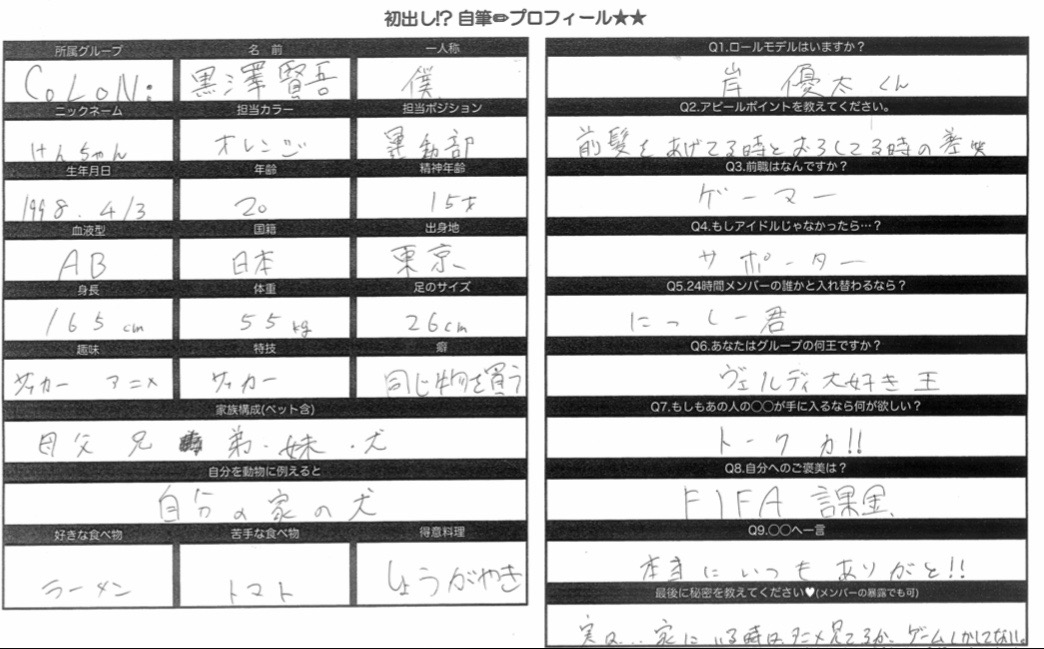 初出し!? 自筆✏プロフィール★★
所属グループ 名 前 一人称
CoLoN: 黒澤賢吾 僕
ニックネーム 担当カラー 担当ポジション
けんちゃん オレンジ 運動部
生年月日 年齢 精神年齢
1998. 4/3 20 15才
血液型 国籍 出身地
AB 日本 東京
身長 体重 足のサイズ
165cm 55kg 26cm
趣味 特技 癖
サッカー アニメ サッカー 同じ物を買う
家族構成(ペット含)
母 父 兄 弟・妹・犬
自分を動物に例えると
自分の家の犬
好きな食べ物 苦手な食べ物 得意料理
ラーメン トマト しょうがやき
Q1.ロールモデルはいますか？
岸 優太くん
Q2.アピールポイントを教えてください。
前髪をあげてる時とおろしてる時の差笑
Q3.前職はなんですか？
ゲーマー
Q4.もしアイドルじゃなかったら…？
サポーター
Q5.24時間メンバーの誰かと入れ替わるなら？
にっしー君
Q6.あなたはグループの何王ですか？
ヴェルディ大好き王
Q7.もしもあの人の〇〇が手に入るなら何が欲しい？
トーク力!!
Q8.自分へのご褒美は？
FIFA 課金
Q9.〇〇へ一言
本当にいつもありがと!!
最後に秘密を教えてください♥(メンバーの暴露でも可)
実は... 家にいる時はアニメ見てるか、ゲームしかしてない。